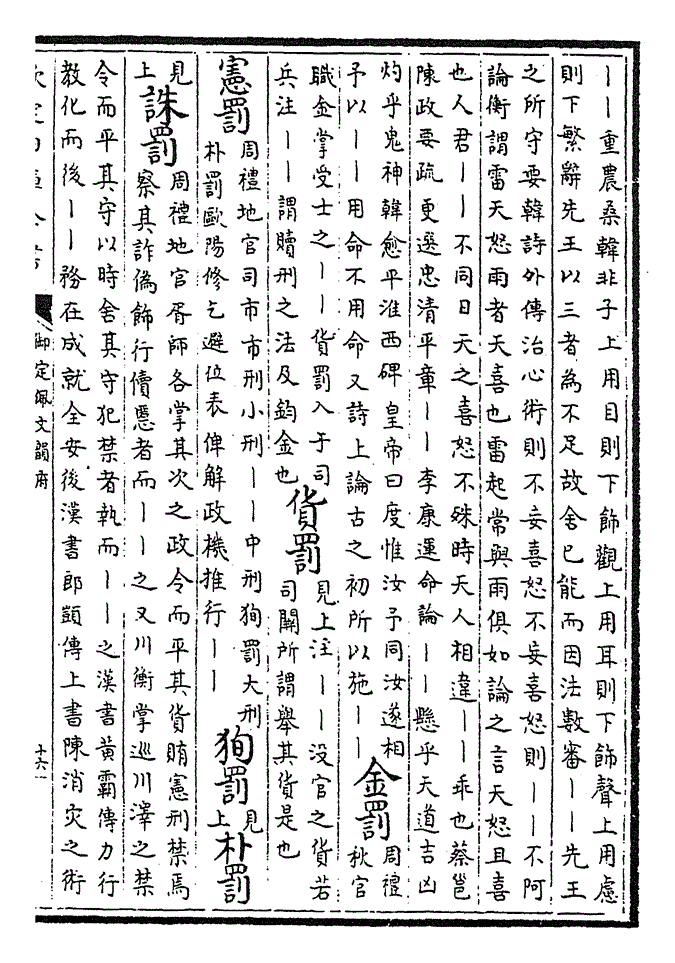 丨丨重農桑韓非子上用目則下飾觀上用耳則下飾聲上用慮
則下繁辭先王以三者為不足故舍已能而因法數審丨丨先王
之所守要韓詩外傳治心術則不妄喜怒不妄喜怒則丨丨不阿
論衡謂雷天怒雨者天喜也雷起常與雨俱如論之言天怒且喜
也人君丨丨不同日天之喜怒不殊時天人相違丨丨乖也蔡邕
陳政要疏更選忠清平章丨丨李康運命論丨丨懸乎天道吉凶
灼乎鬼神韓愈平淮西碑皇帝曰度惟汝予同汝遂相
予以丨丨用命不用命又詩上論古之初所以施丨丨
金罰
周禮
秋官
職金掌受士之丨丨貨罰入于司
兵注丨丨謂贖刑之法及鈞金也
貨罰
見上注丨丨没官之貨若
司關所謂舉其貨是也
憲罰
周禮地官司市市刑小刑丨丨中刑狥罰大刑
朴罰歐陽修乞避位表俾解政機推行丨丨
狥罰
見
上
朴罰
見
上
誅罰
周禮地官胥師各掌其次之政令而平其貨賄憲刑禁焉
察其詐偽飾行儥慝者而丨丨之又川衡掌巡川澤之禁
令而平其守以時舍其守犯禁者執而丨丨之漢書黄霸傳力行
教化而後丨丨務在成就全安後漢書郎顗傳上書陳消灾之術
御定佩文韻府
十六